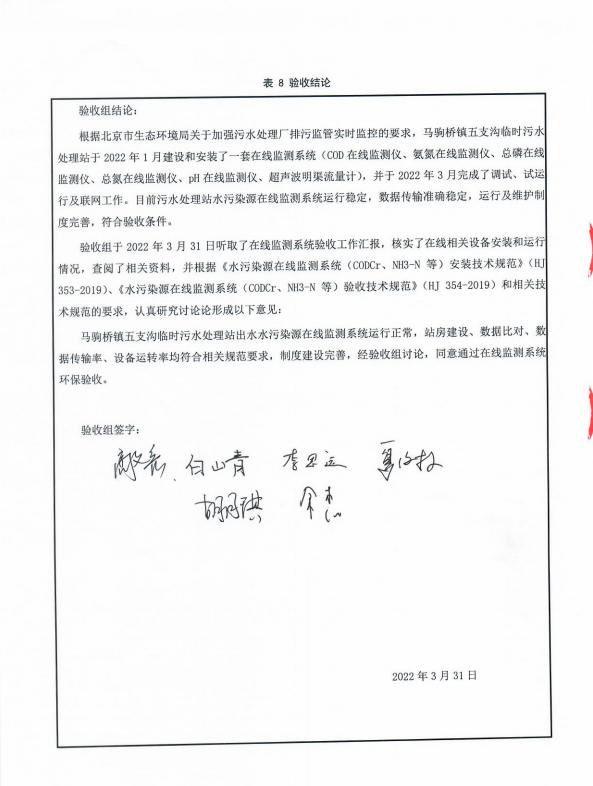 表 8 验收结论
验收组结论：
根据北京市生态环境局关于加强污水处理厂排污监管实时监控的要求，马驹桥镇五支沟临时污水
处理站于 2022 年 1 月建设和安装了一套在线监测系统（COD 在线监测仪、氨氮在线监测仪、总磷在线
监测仪、总氮在线监测仪、pH 在线监测仪、超声波明渠流量计），并于 2022 年 3 月完成了调试、试运
行及联网工作。目前污水处理站水污染源在线监测系统运行稳定，数据传输准确稳定，运行及维护制
度完善，符合验收条件。
验收组于 2022 年 3 月 31 日听取了在线监测系统验收工作汇报，核实了在线相关设备安装和运行
情况，查阅了相关资料，并根据《水污染源在线监测系统（CODCr、NH3-N 等）安装技术规范》（HJ
353-2019）、《水污染源在线监测系统（CODCr、NH3-N 等）验收技术规范》（HJ 354-2019）和相关技
术规范的要求，认真研究讨论论形成以下意见：
马驹桥镇五支沟临时污水处理站出水水污染源在线监测系统运行正常，站房建设、数据比对、数
据传输率、设备运转率均符合相关规范要求，制度建设完善，经验收组讨论，同意通过在线监测系统
环保验收。
验收组签字：
白山青
2022 年 3 月 31 日